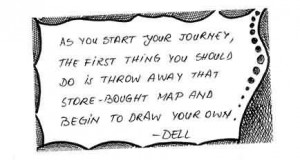 AS YOU START YOUR JOURNEY,
THE FIRST THING YOU SHOULD
DO IS THROW AWAY THAT
STORE-BOUGHT MAP AND
BEGIN TO DRAW YOUR OWN.
-DELL